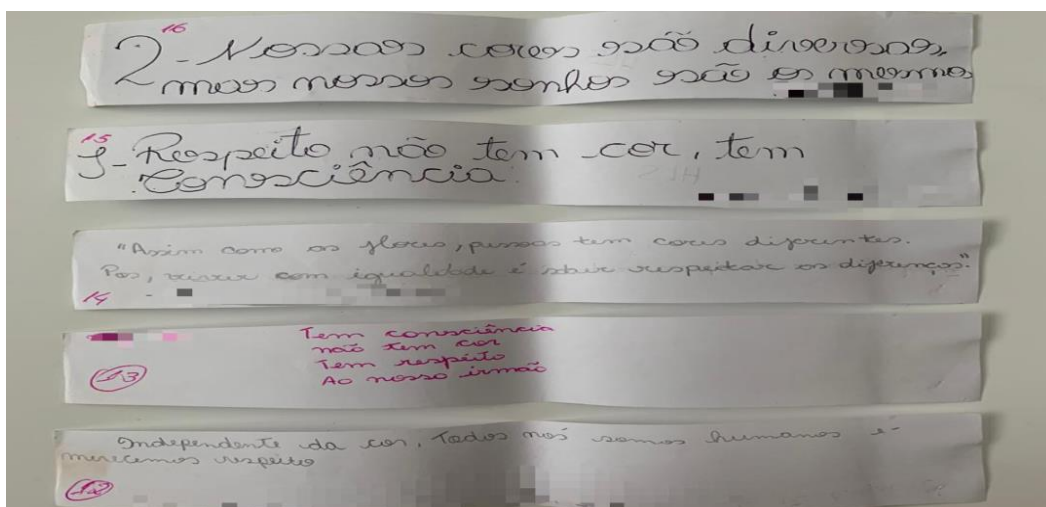 16
2- Nossas cores são diversas,
mas nossos sonhos são os mesmo
15
1- Respeito não tem cor, tem
Consciência.
"Assim como as flores, pessoas tem cores diferentes.
Pos, viver com igualdade é saber respeitar as diferenças."
14
Tem consciência
não tem cor
Tem respeito
Ao nosso irmão
13
Independente da cor, Todos nós somos humanos e
merecemos respeito
12